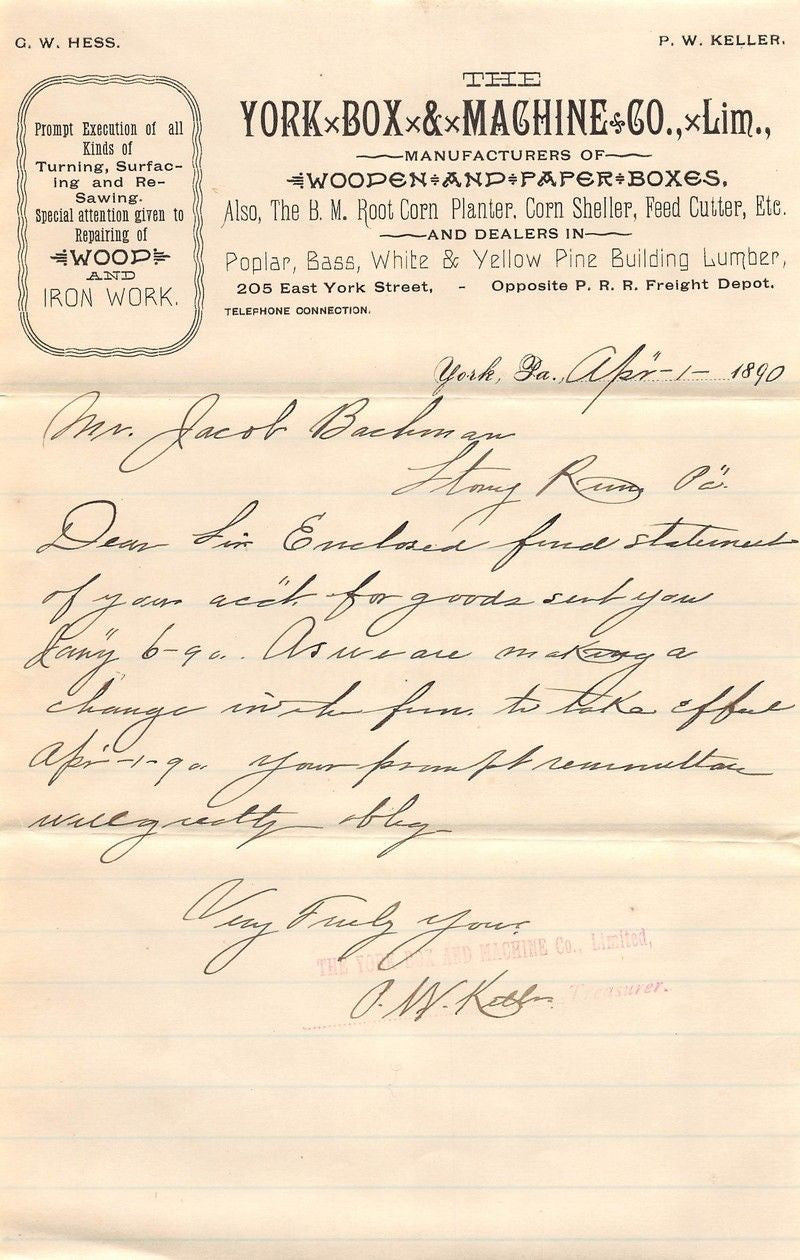 G. W. HESS.
P. W. KELLER.
Prompt Execution of all
Kinds of
Turning, Surfac-
ing and Re-
Sawing.
Special attention given to
Repairing of
WOOD
AND
IRON WORK.
THE
YORK×BOX×&×MACHINE CO.,×Lim.,
MANUFACTURERS OF
WOODEN AND PAPER BOXES,
Also, The B. M. Root Corn Planter, Corn Sheller, Feed Cutter, Etc.
AND DEALERS IN
Poplar, Bass, White & Yellow Pine Building Lumber,
205 East York Street, - Opposite P. R. R. Freight Depot.
TELEPHONE CONNECTION.
York, Pa., Apr-1- 1890
Mr. Jacob Bachman
Stony Run Pa.
Dear Sir Enclosed find statement
of your acct. for goods sent you
Jany 6-90. As we are making a
change in the firm. to take effect
Apr-1-90 your prompt remmittance
will greatly oblig
Very Truly Yours
THE YORK BOX AND MACHINE Co., Limited,
P. W. Keller Treasurer.